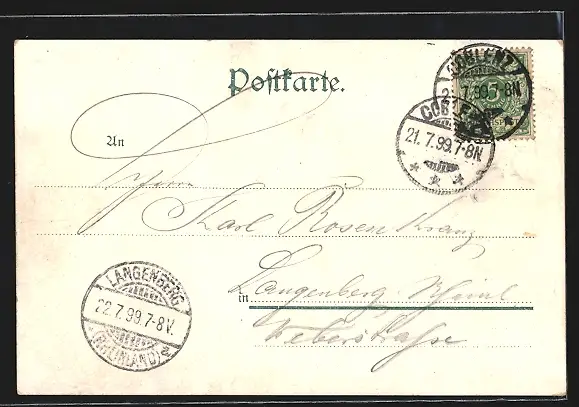 Postkarte.
COBLENZ
21.7.99.7-8N
COBLENZ
21.7.99.7-8N
5
An
Herrn
Karl Rosenkranz
in Langenberg Rheinl
Weberstraße
LANGENBERG
22.7.99.7-8V.
(RHEINLAND)